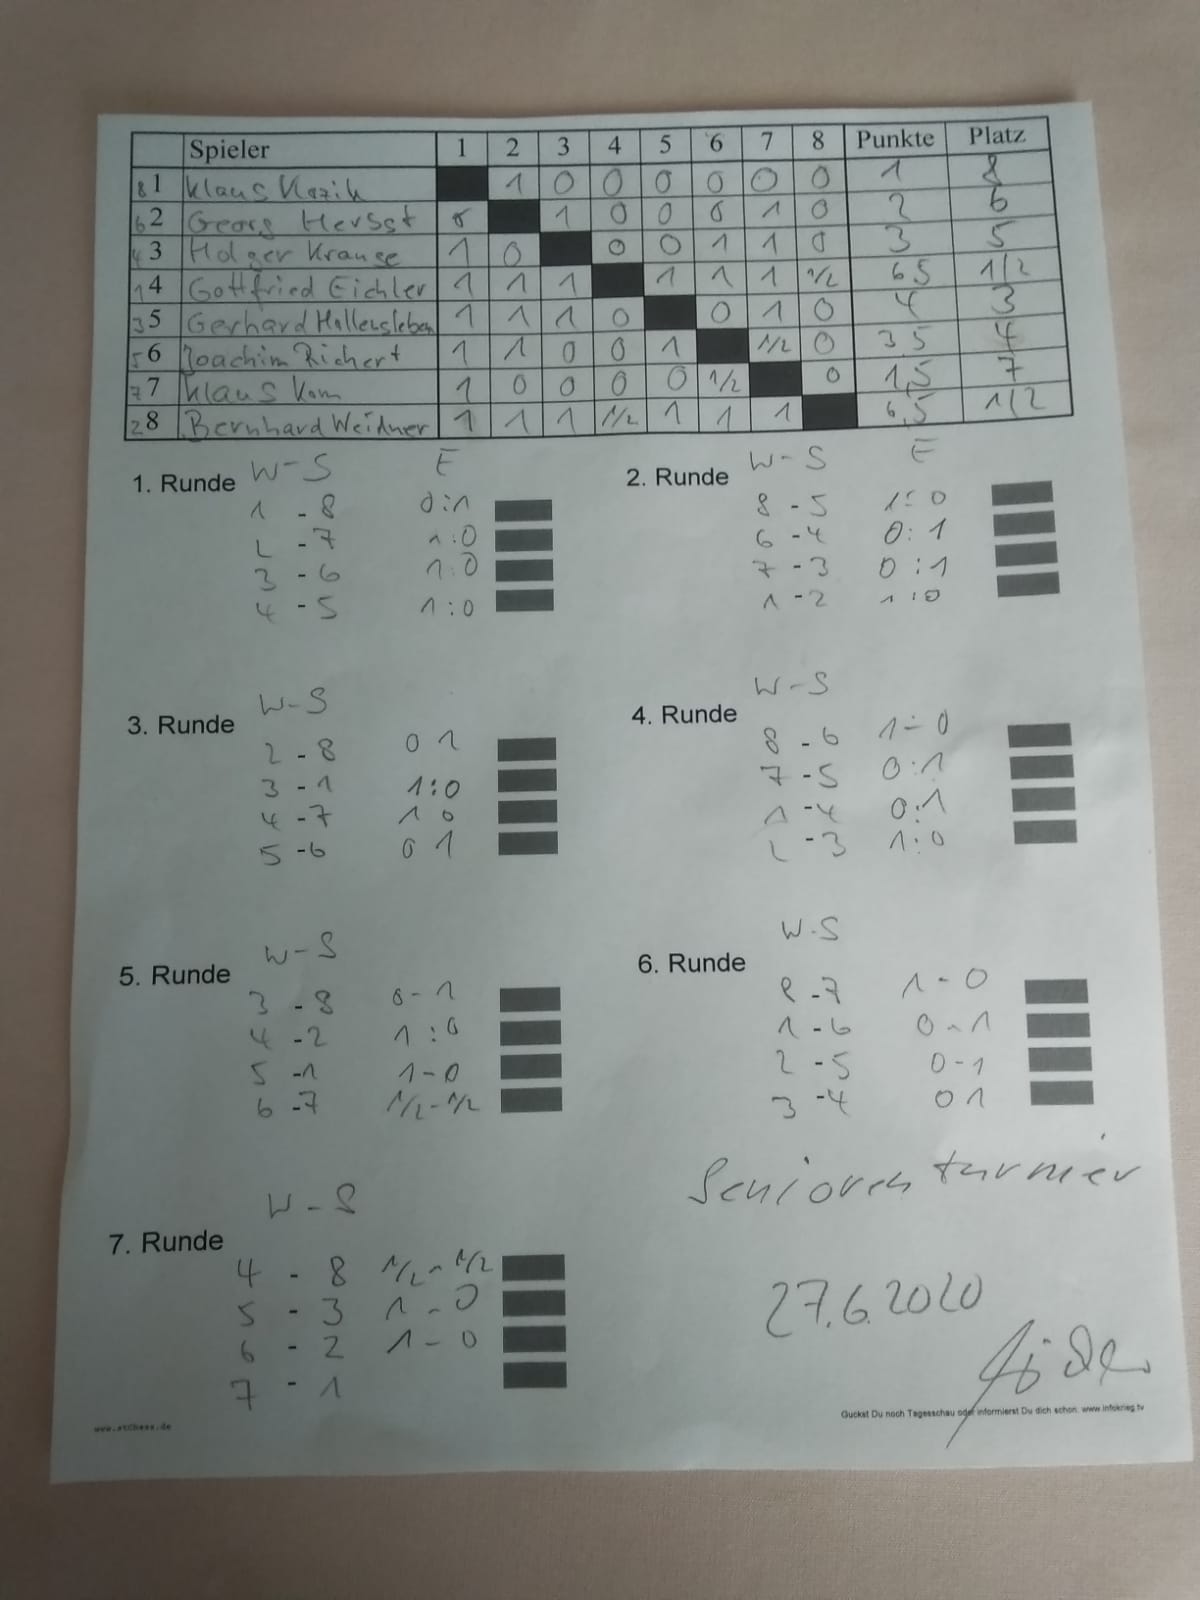 Spieler 1 2 3 4 5 6 7 8 Punkte Platz
8 1 Klaus 1 0 0 0 0 0 0 1 8
6 2 Georg Herbst 0 1 0 0 0 1 0 2 6
4 3 Holger Krause 1 0 0 0 1 1 0 3 5
1 4 Gottfried Eichler 1 1 1 1 1 1 1/2 6,5 1/2
3 5 Gerhard Hallensleben 1 1 1 0 0 1 0 4 3
5 6 Joachim Richert 1 1 0 0 1 1/2 0 3,5 4
7 7 Klaus 1 0 0 0 0 1/2 0 1,5 7
2 8 Bernhard Weidner 1 1 1 1/2 1 1 1 6,5 1/2
1. Runde W-S E
1 - 8 0:1
2 - 7 1:0
3 - 6 1:0
4 - 5 1:0
2. Runde W-S E
8 - 5 1:0
6 - 4 0:1
7 - 3 0:1
1 - 2 1:0
3. Runde W-S
2 - 8 0 1
3 - 1 1:0
4 - 7 1 0
5 - 6 0 1
4. Runde W-S
8 - 6 1-0
7 - 5 0:1
1 - 4 0:1
2 - 3 1:0
5. Runde W-S
3 - 8 0-1
4 - 2 1:0
5 - 1 1-0
6 - 7 1/2-1/2
6. Runde W-S
8 - 7 1-0
1 - 6 0-1
2 - 5 0-1
3 - 4 0 1
Seniorenturnier
7. Runde W-S
4 - 8 1/2-1/2
5 - 3 1-0
6 - 2 1-0
7 - 1
27.6.2020
Guckst Du noch Tagesschau oder informierst Du dich schon. www.infokrieg.tv